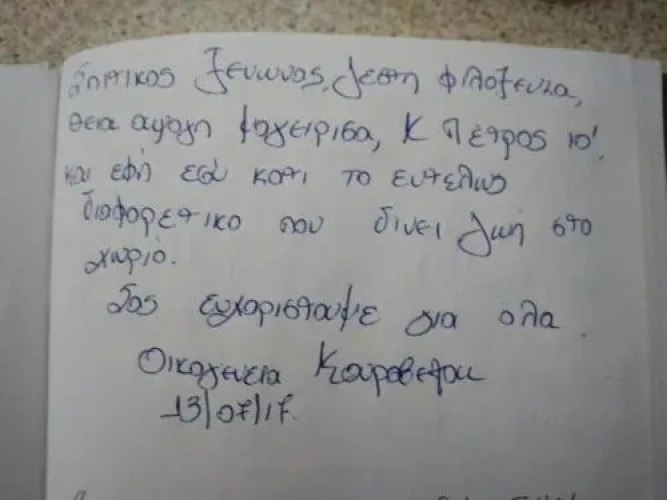 Σπιτικος ξενωνας, ζεστη φιλοξενια,
θεια αψογη μαγειρισα, Κ Πετρος
και εδω κατι το εντελως
διαφορετικο που δινει ζωη στο
χωριό.
Σας ευχαριστουμε για ολα.
Οικογενεια
13/07/17.